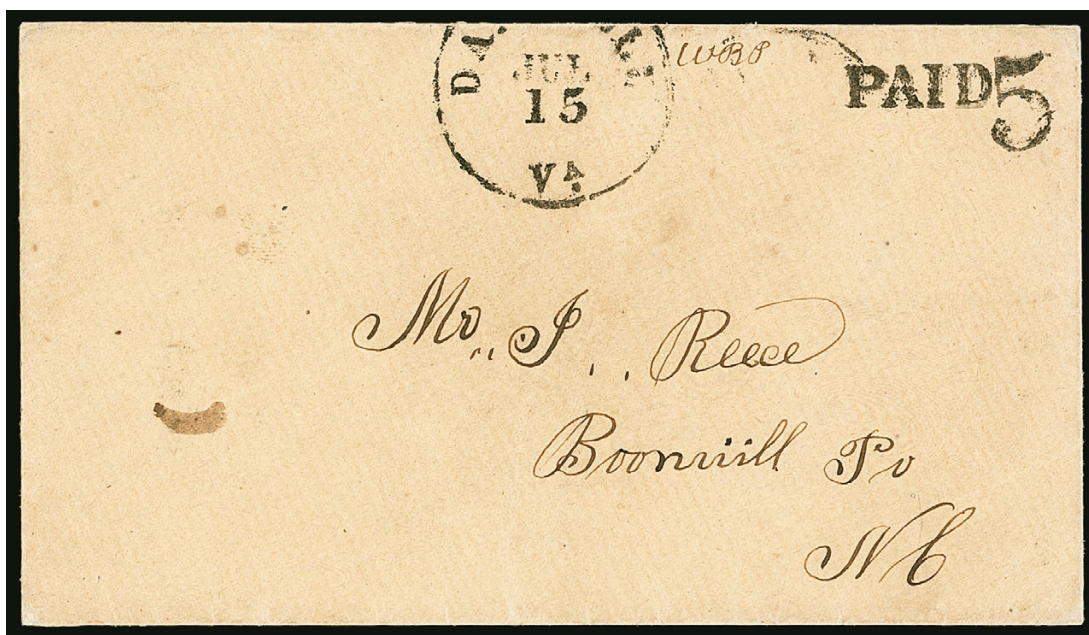 JUL
15
VA
WBP
PAID 5
Mr. J. Reece
Boonvill Po
NC